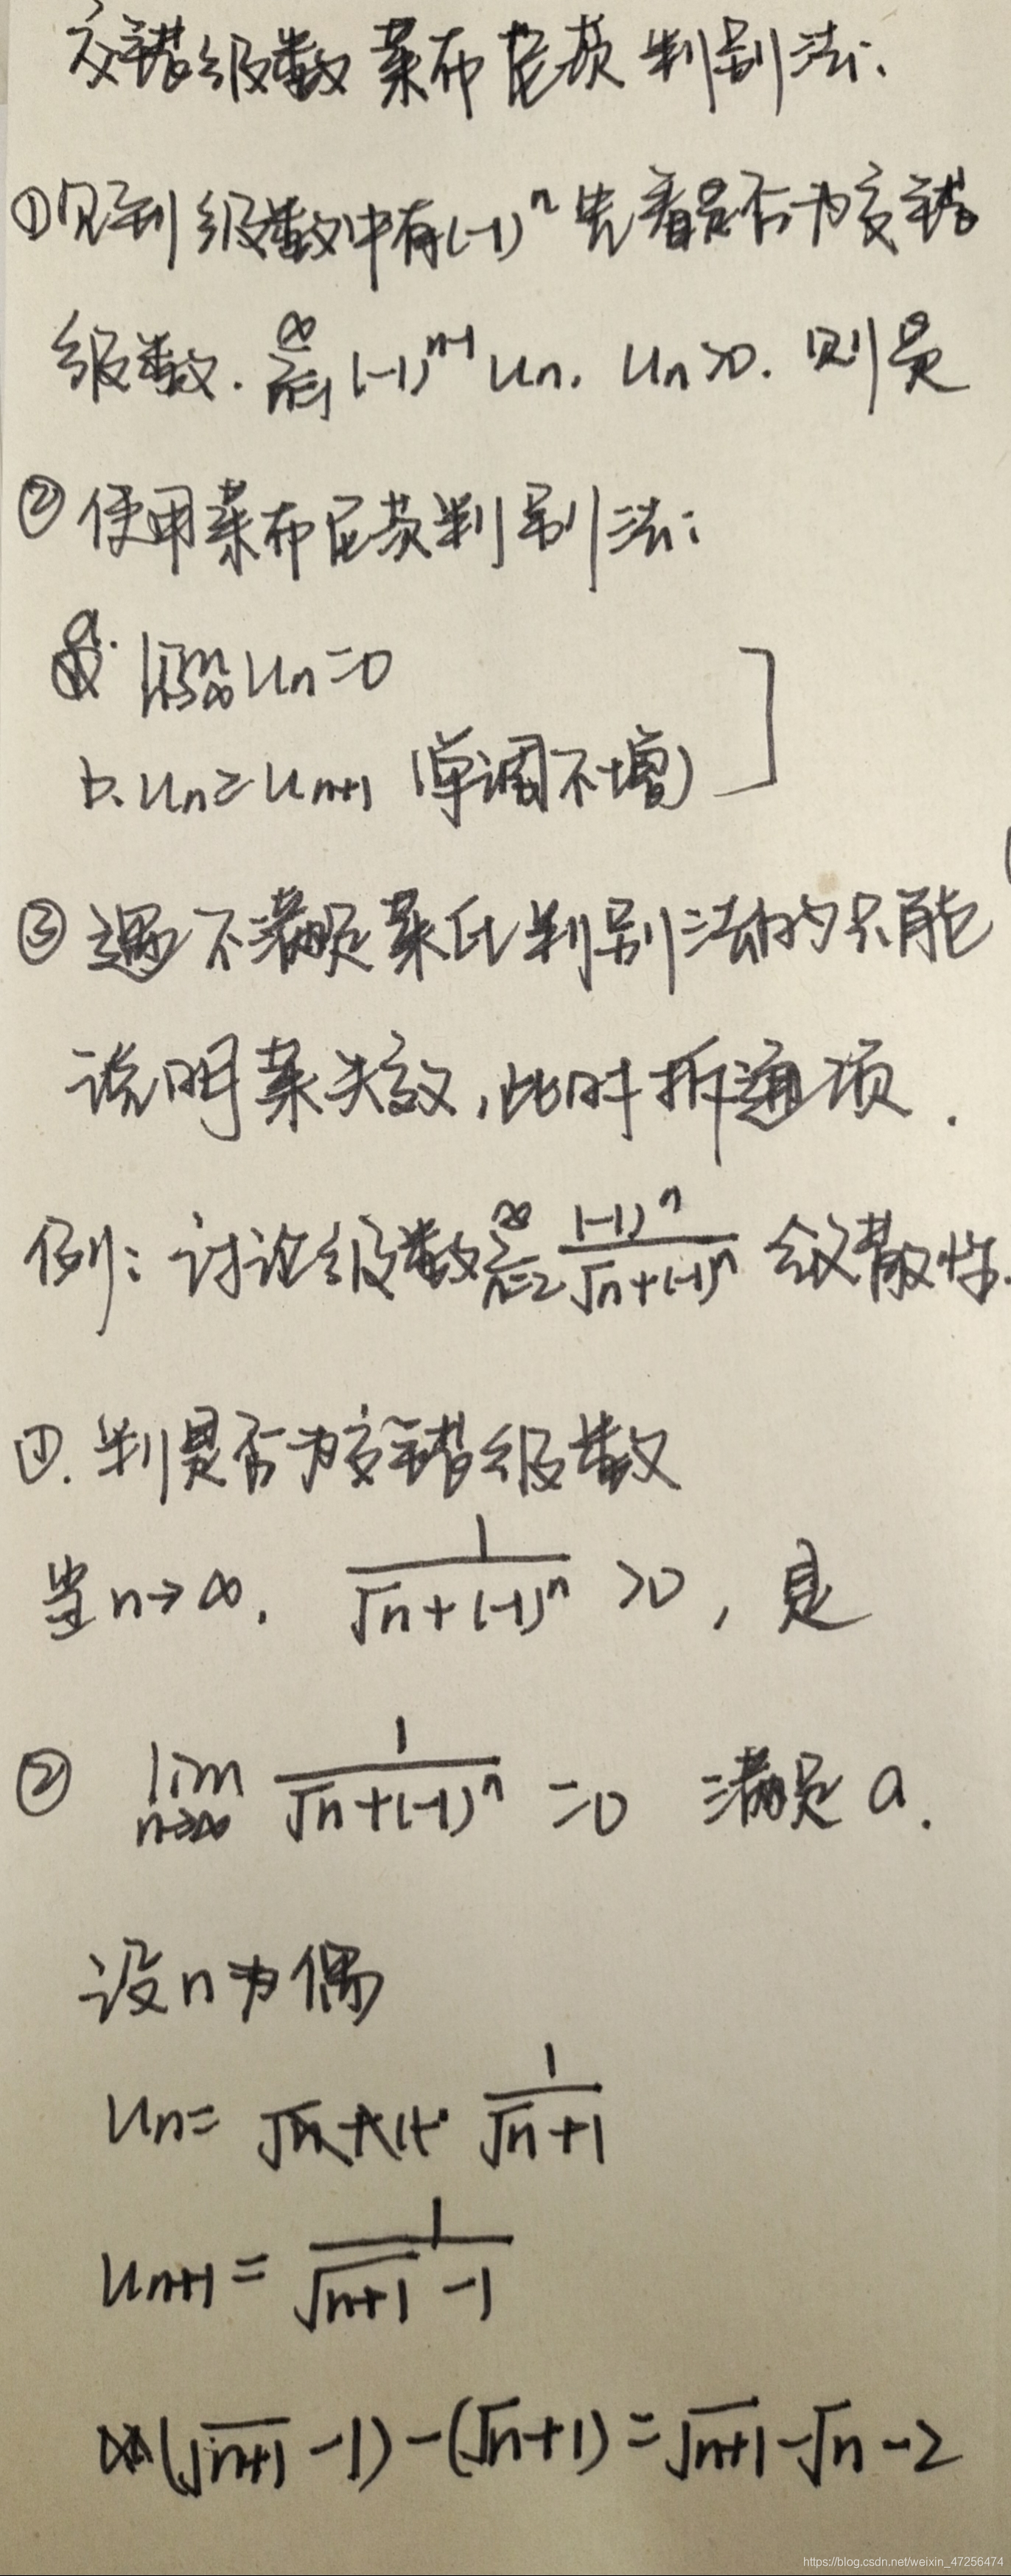 交错级数莱布尼茨判别法:
①见到级数中有(-1)^n先看是否为交错
级数. ∑_{n=1}^∞ (-1)^{n-1} un. un>0. 则是
②使用莱布尼茨判别法:
a. lim_{n→∞} un=0
b. un≥un+1 (单调不增)
③遇不满足莱氏判别法的只能
说明莱失效,此时拆通项.
例: 讨论级数∑_{n=2}^∞ (-1)^n/(√n+(-1)^n) 敛散性.
①. 判是否为交错级数
当n→∞, 1/(√n+(-1)^n) >0, 是
② lim_{n→∞} 1/(√n+(-1)^n) =0 满足a.
设n为偶
un= 1/(√n+1)
un+1= 1/(√(n+1) -1)
(√(n+1) -1)-(√n+1)=√(n+1)-√n-2
https://blog.csdn.net/weixin_47256474